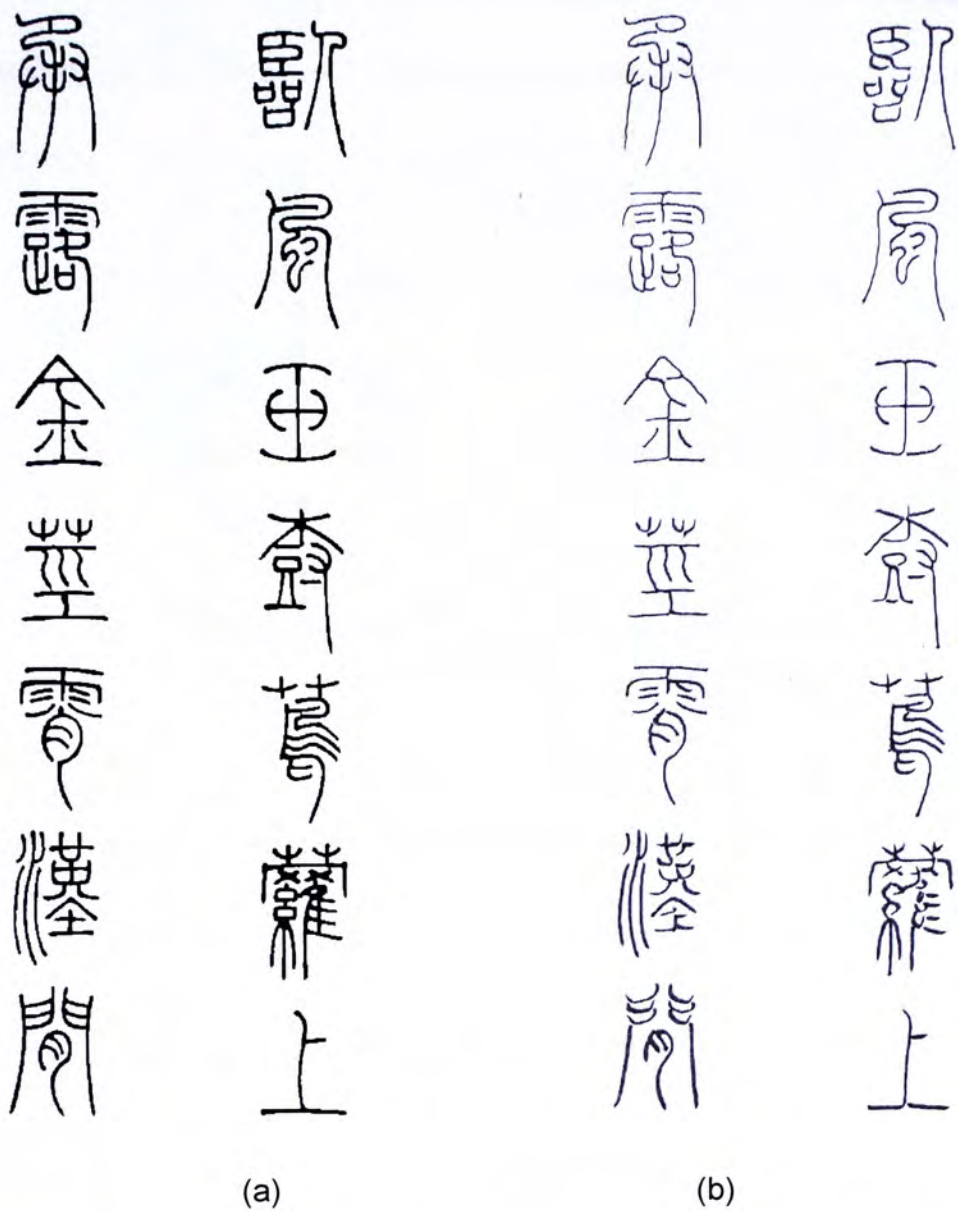 臨風玉樹蔦蘿上
承露金莖霄漢間
(a)
臨風玉樹蔦蘿上
承露金莖霄漢間
(b)